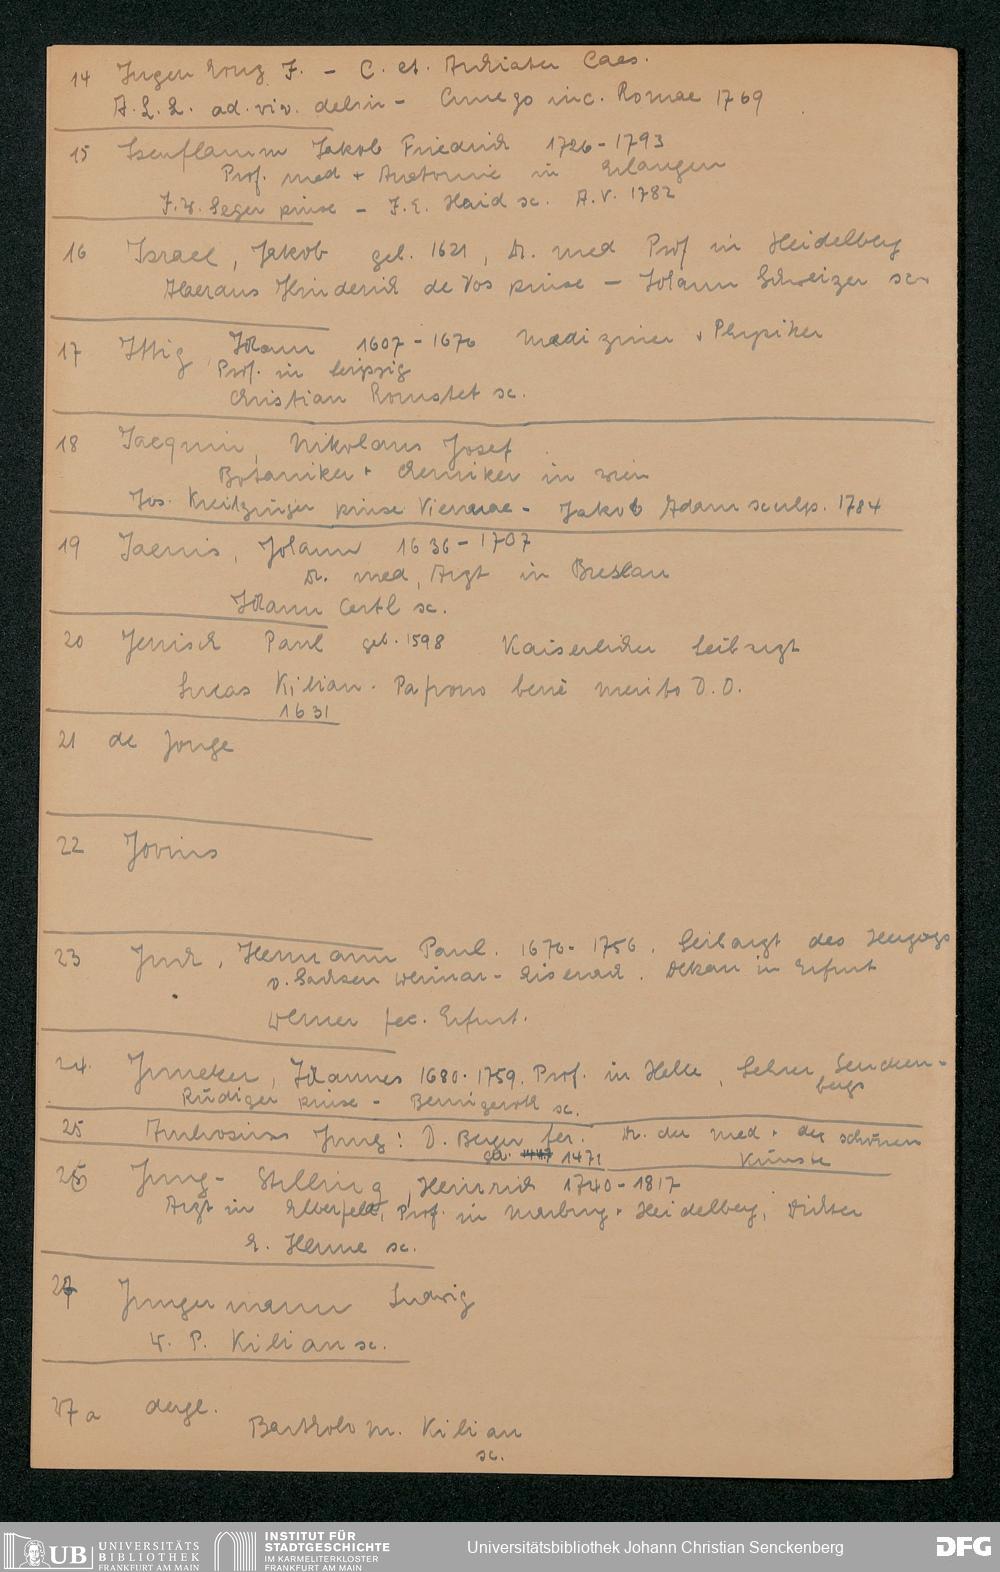 14 Ingenhousz J. - C. et. Archiater Caes.
A. L. L. ad. viv. delin - Cunego inc. Romae 1769
15 Isenflamm Jakob Friedrich 1726-1793
Prof. med + Anatomie in Erlangen
J. W. Seger pinse - J. E. Haid sc. A. V. 1782
16 Israel, Jakob geb. 1621, Dr. med Prof in Heidelberg
Hinderich de Vos pinse - Johann Schweizer sc
17 Ittig, Johann 1607-1676 Mediziner + Physiker
Prof. in Leipzig
Christian Romstet sc.
18 Jacquin, Nikolaus Josef
Botaniker + Chemiker in Wien
Jos. Kreitzinger pinse Viennae - Jakob Adam sculp. 1784
19 Jaenis, Johann 1636-1707
Dr. med, Arzt in Breslau
Johann Oertl sc.
20 Jenisch Paul geb. 1598 Kaiserlicher Leibarzt
Lucas Kilian. Patrono benè merito D. D.
1631
21 de Jonge
22 Jovius
23 Juch, Hermann Paul. 1676-1756. Leibarzt des Herzogs
v. Sachsen Weimar-Eisenach. Dekan in Erfurt
Werner fec. Erfurt.
24. Juncker, Johannes 1680-1759. Prof. in Halle, Lehrer Sencken-
bergs
Rüdiger pinse - Bernigeroth sc.
25 Ambrosius Jung: D. Berger fec. Dr. der med + der schönen
Künste
geb. 1471
26 Jung-Stilling, Heinrich 1740-1817
Arzt in Elberfeld, Prof. in Marburg + Heidelberg, Dichter
E. Henne sc.
27 Jungermann Ludwig
W. P. Kilian sc.
27a dergl.
Bartholom. Kilian
sc.
UB UNIVERSITÄTS
BIBLIOTHEK
FRANKFURT AM MAIN
INSTITUT FÜR
STADTGESCHICHTE
IM KARMELITERKLOSTER
FRANKFURT AM MAIN
Universitätsbibliothek Johann Christian Senckenberg
DFG